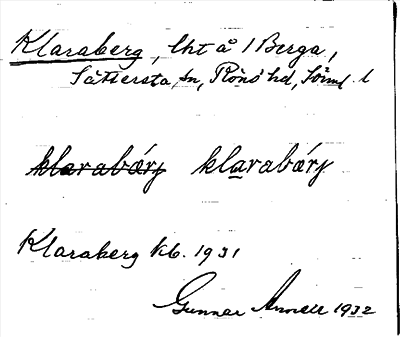 Klaraberg, lht å 1 Berga,
Sättersta sn, Rönö hd, Söml. l
klarabærj klarabærj
Klaraberg kb. 1931
Gunnar Annell 1932